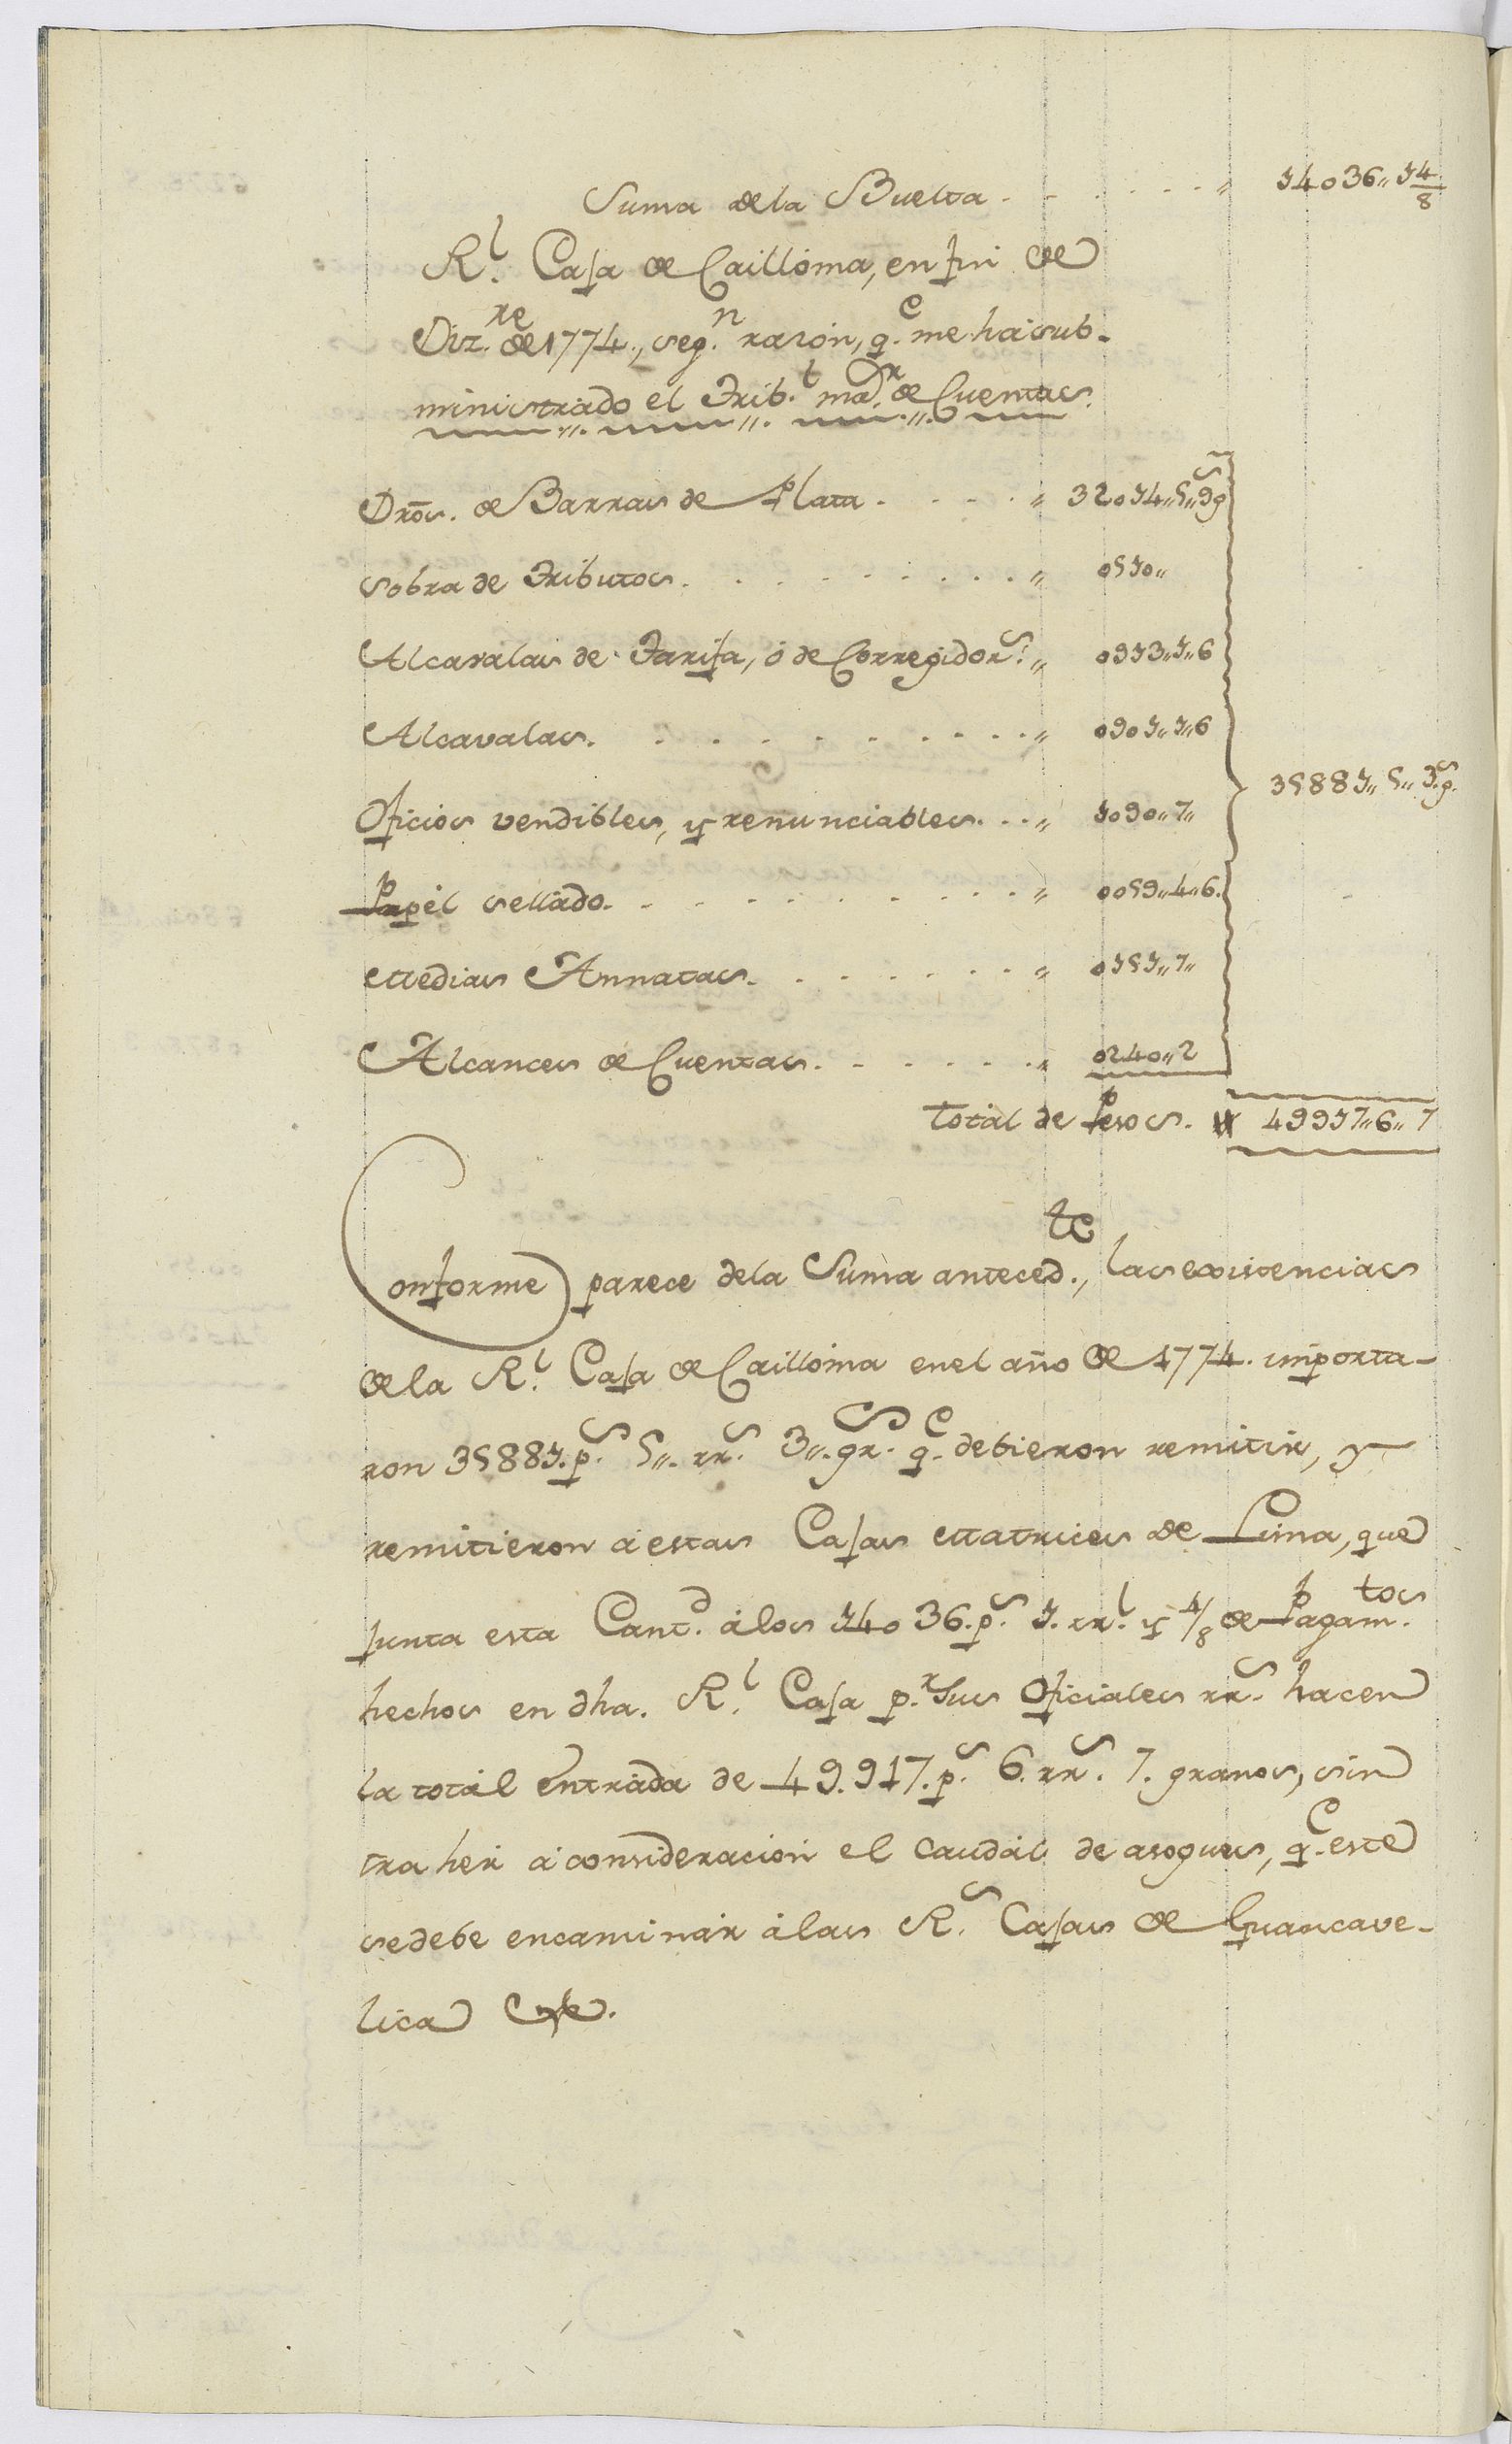 Suma de la Buelta . . . . . . ,, 14036,,1 4/8
R.l Caja de Cailloma, en fin de
Diz.re de 1774., seg.n razon, q.e me ha sub-
ministrado el Trib.l ma.or de Cuentas.
Dros. de Barras de Plata . . . . ,, 32014,,5,,9gs
Sobra de Tributos. . . . . . . . . ,, 0510,,
Alcavalas de Tarifa, ó de Corregidor.s ,, 0913,,1,,6
Alcavalas. . . . . . . . . . ,, 0901,,1,,6
35881,, 5,, 3.gs.
Oficios vendibles, y renunciables. . . ,, 1090,,7,,
Papel sellado. . . . . . . . . . ,, 0059,,4,,6.
Medias Annatas. . . . . . . ,, 0151,,7,,
Alcances de Cuentas. . . . . . ,, 0240,,2
Total de Pesos. 49917,,6,,7
Conforme parece dela Suma anteced.te, las existencias
de la R.l Caja de Cailloma enel año de 1774. importa-
ron 35881.p.s 5,,. rr.s 3,,.gr.s q.e debieron remitir, y
remitieron á estas Cajas Matrices de Lima, que
junta esta Cant.d á los 14036.p.s 1. rr.l y 4/8 de Pagam.tos
hechos en dha. R.l Caja p.r Sus Oficiales rr.s hacen
la totál entrada de 49.917.p.s 6. rr.s 7. granos, sin
traher á consideracion el caudál de asogues, q.e este
sedebe encaminár á las R.s Cajas de Guancave-
lica